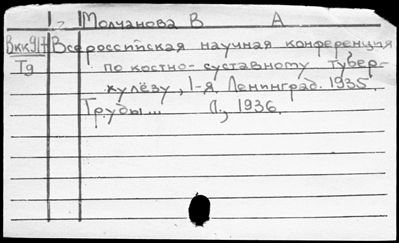 Молчанова В А
Вкк917 Всероссийская научная конференция
Т9 по костно-суставному тубер-
кулёзу, 1-я. Ленинград. 1935.
Труды... Л., 1936.